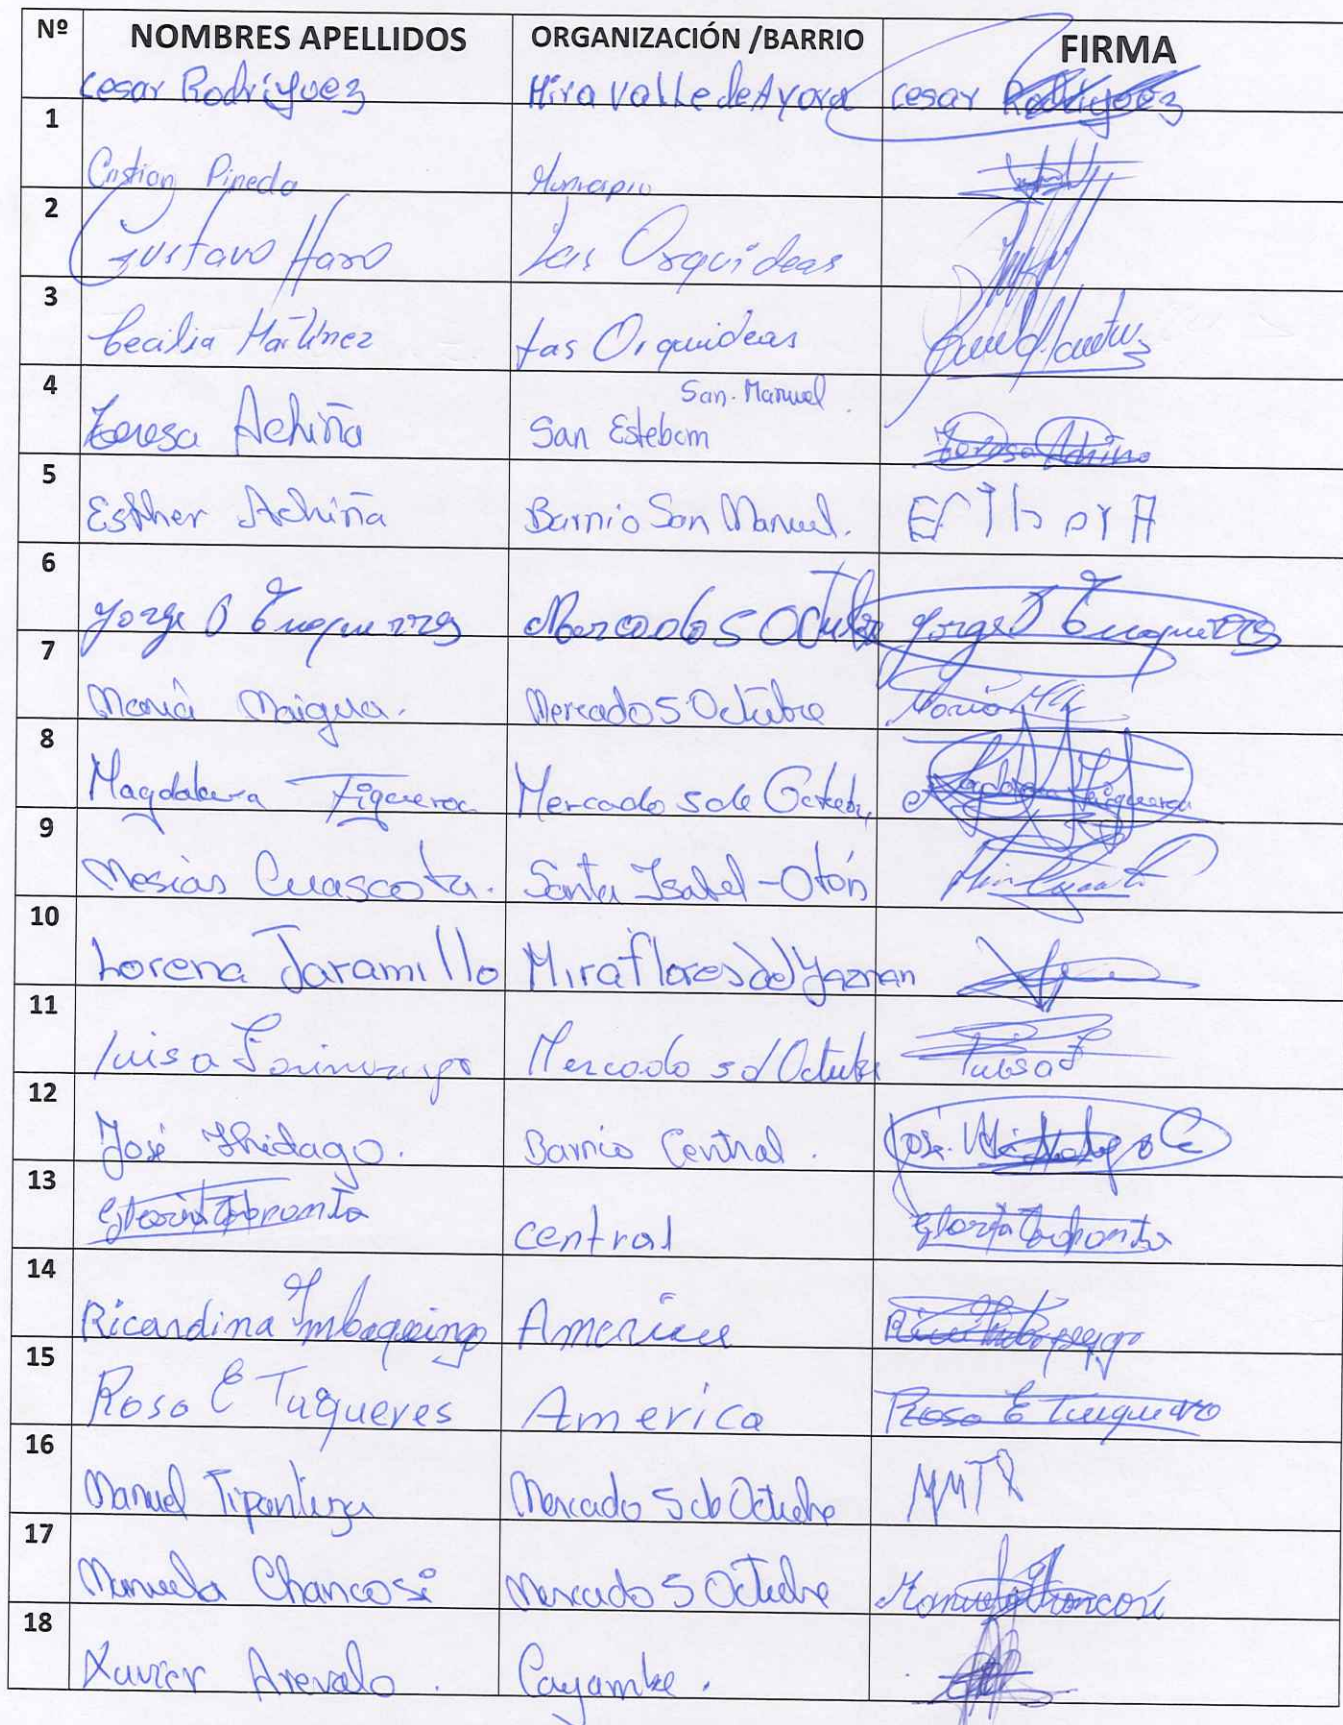 Nº NOMBRES APELLIDOS ORGANIZACIÓN /BARRIO FIRMA
Cesar Rodriguez Miravalle de Ayora Cesar Rodriguez
1 Cristian Pineda Municipio
2 Gustavo Haro Las Orquideas
3 Cecilia Martinez Las Orquideas
4 San Manuel
Teresa Achiña San Esteban Teresa Achiña
5 Esther Achiña Barrio San Manuel.
6 Jorge O Tuquerres Mercado 5 Octubre Jorge O Tuquerres
7 Maria Maigua. Mercado 5 Octubre Maria
8 Magdalena Figueroa Mercado 5 de Octubre Figueroa
9 Mesias Cuascota. Santa Isabel - Otón
10 Lorena Jaramillo Miraflores del Yaznan
11 luisa Mercado 5 d Octubre luisa
12 José Hidago. Barrio Central. José
13 Gloria Toapanta central Gloria Toapanta
14 Ricardina Imbaquingo America
15 Rosa E Tuqueres America Rosa E
16 Manuel Tipantiza Mercado 5 de Octubre
17 Manuela Chancosi Mercado 5 Octubre Manuela Chancosi
18 Xavier Arevalo. Cayambe.